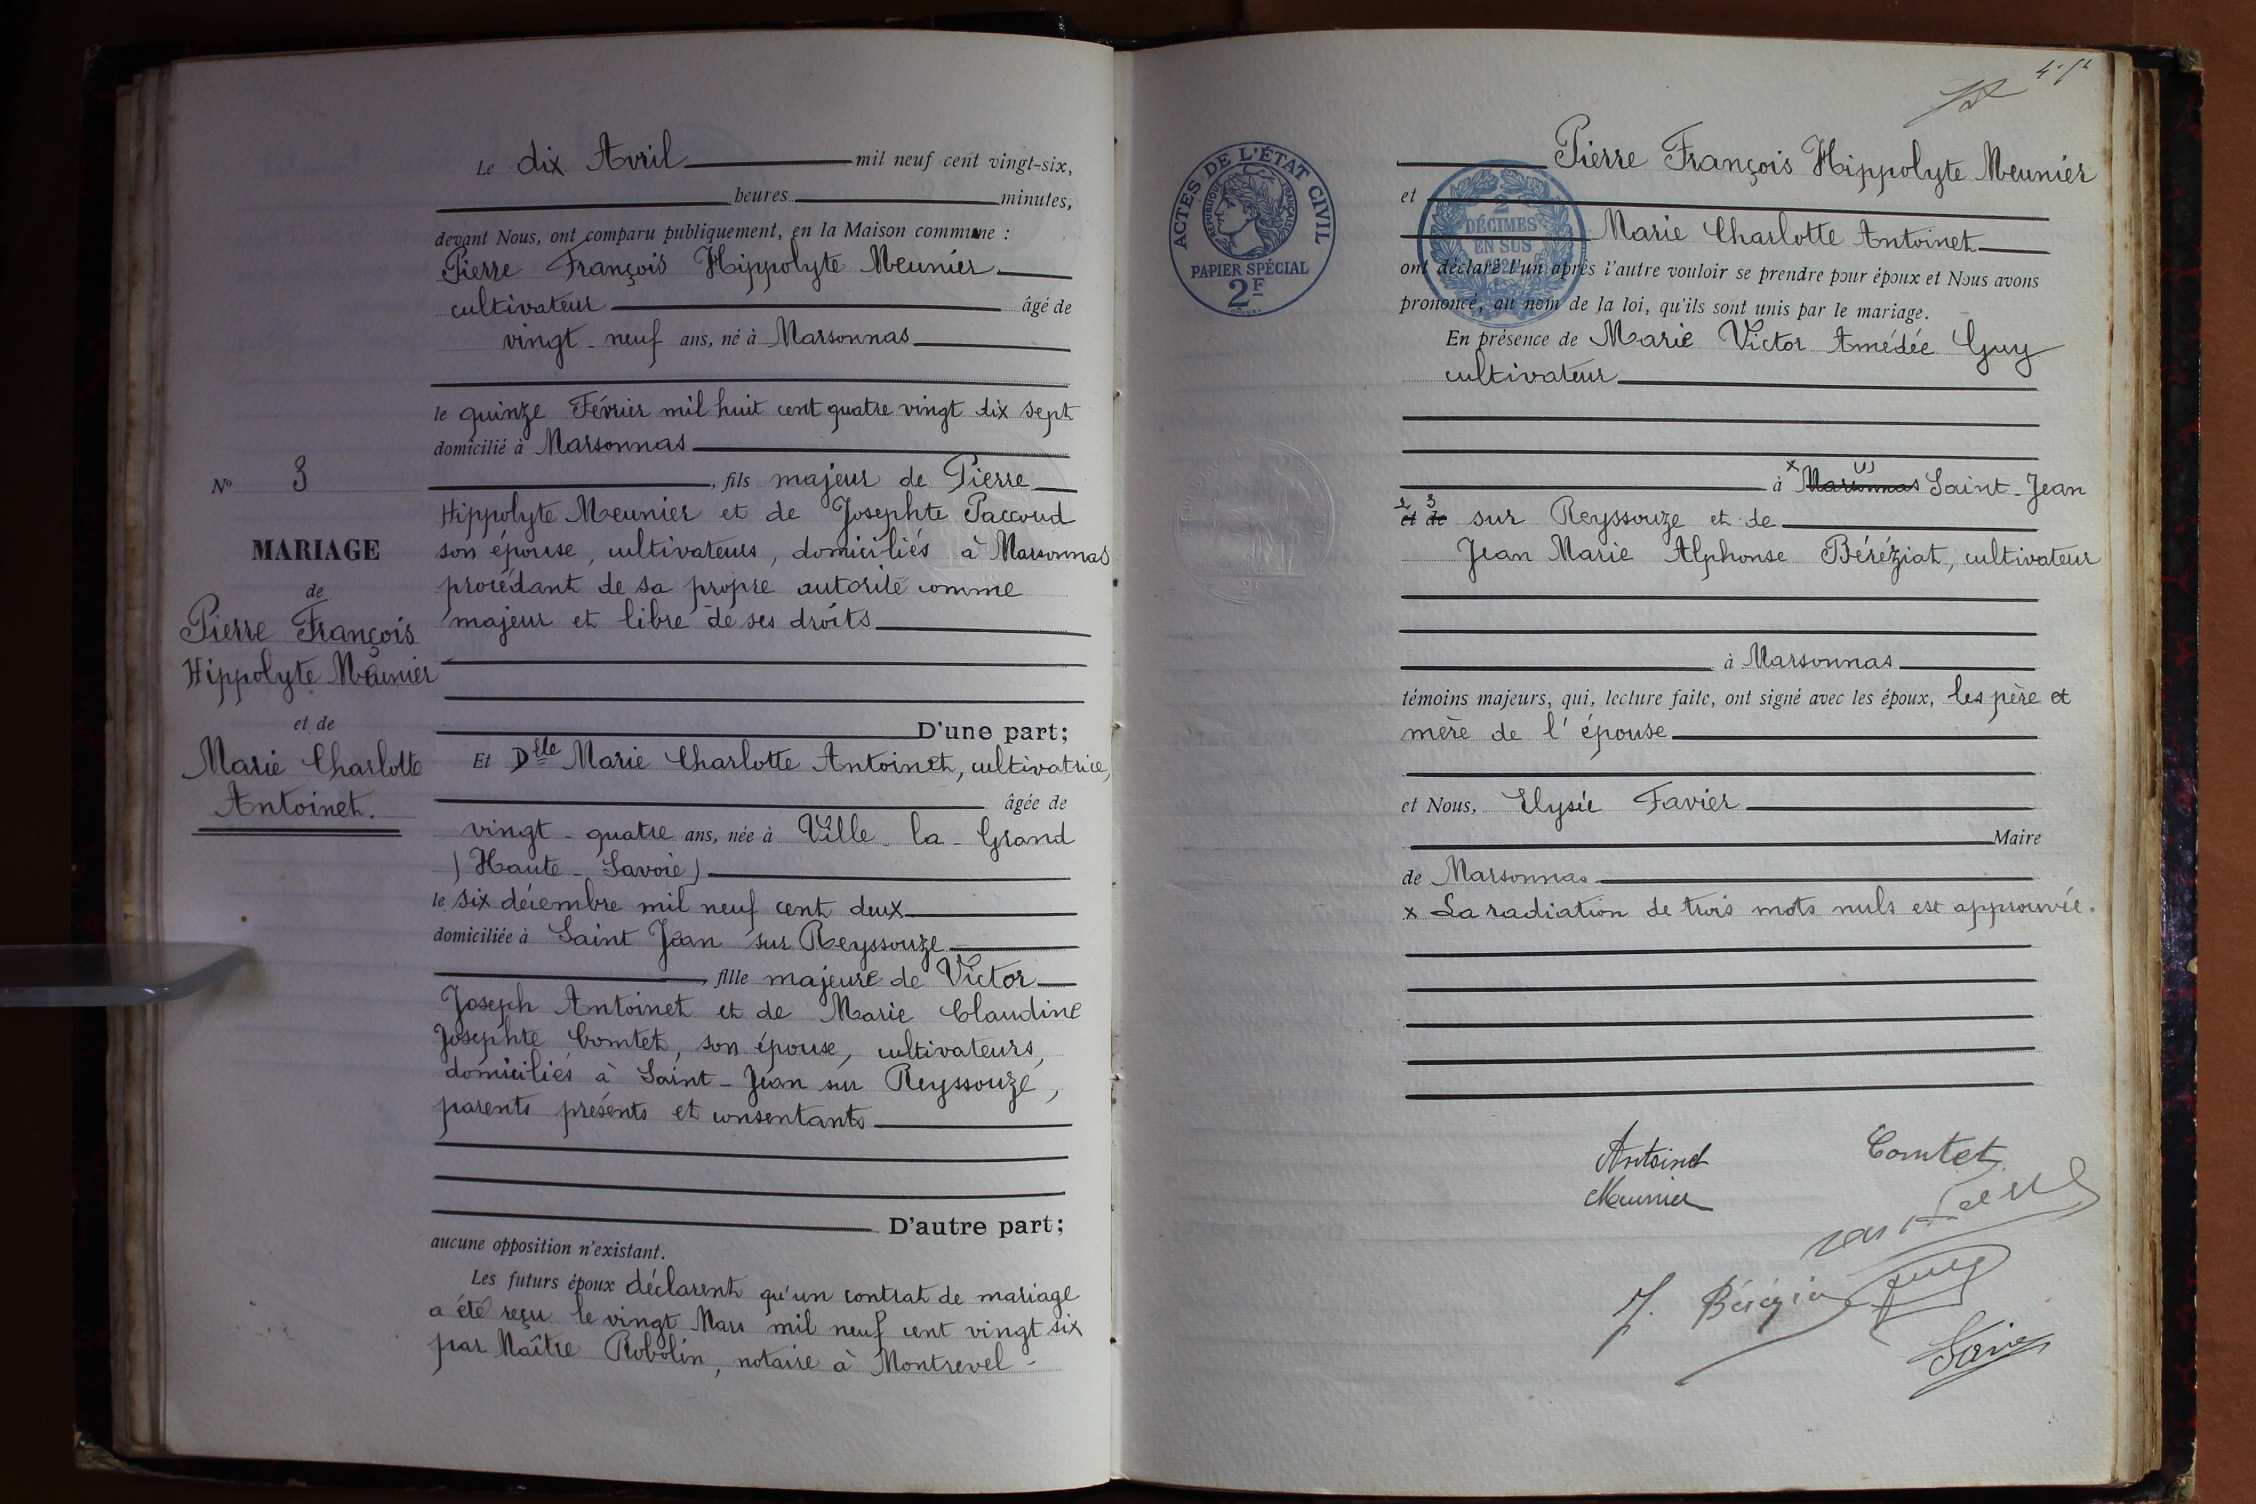 Le dix Avril mil neuf cent vingt-six,
heures minutes,
devant Nous, ont comparu publiquement, en la Maison commune :
Pierre François Hippolyte Meunier
cultivateur âgé de
vingt-neuf ans, né à Marsonnas
le quinze Février mil huit cent quatre vingt dix sept
domicilié à Marsonnas
, fils majeur de Pierre
Hippolyte Meunier et de Josephte Paccoud
son épouse, cultivateurs, domiciliés à Marsonnas
procédant de sa propre autorité comme
majeur et libre de ses droits
D'une part;
Et Dlle Marie Charlotte Antoinet, cultivatrice,
âgée de
vingt-quatre ans, née à Ville-la-Grand
(Haute-Savoie)
le six décembre mil neuf cent deux
domiciliée à Saint Jean sur Reyssouze
, fille majeure de Victor
Joseph Antoinet et de Marie Claudine
Josephte Comtet, son épouse, cultivateurs,
domiciliés à Saint-Jean sur Reyssouze,
parents présents et consentants
D'autre part;
aucune opposition n'existant.
Les futurs époux déclarent qu'un contrat de mariage
a été reçu le vingt Mars mil neuf cent vingt six
par Maître Robolin, notaire à Montrevel-
No 3
MARIAGE
de
Pierre François
Hippolyte Meunier
et de
Marie Charlotte
Antoinet.
ACTES DE L'ÉTAT CIVIL
RÉPUBLIQUE FRANÇAISE
PAPIER SPÉCIAL
2F
2
DÉCIMES
EN SUS
Pierre François Hippolyte Meunier
et
Marie Charlotte Antoinet
ont déclaré l'un après l'autre vouloir se prendre pour époux et Nous avons
prononcé, au nom de la loi, qu'ils sont unis par le mariage.
En présence de Marie Victor Amédée Guy
cultivateur
à x Marsonnas (1) Saint-Jean
2 et 3 de sur Reyssouze et de
Jean Marie Alphonse Béréziat, cultivateur
à Marsonnas
témoins majeurs, qui, lecture faite, ont signé avec les époux, les père et
mère de l'épouse
et Nous, Elysée Favier
Maire
de Marsonnas
x La radiation de trois mots nuls est approuvée.
Antoinet Comtet
Meunier
J. Béréziat Guy
Favier